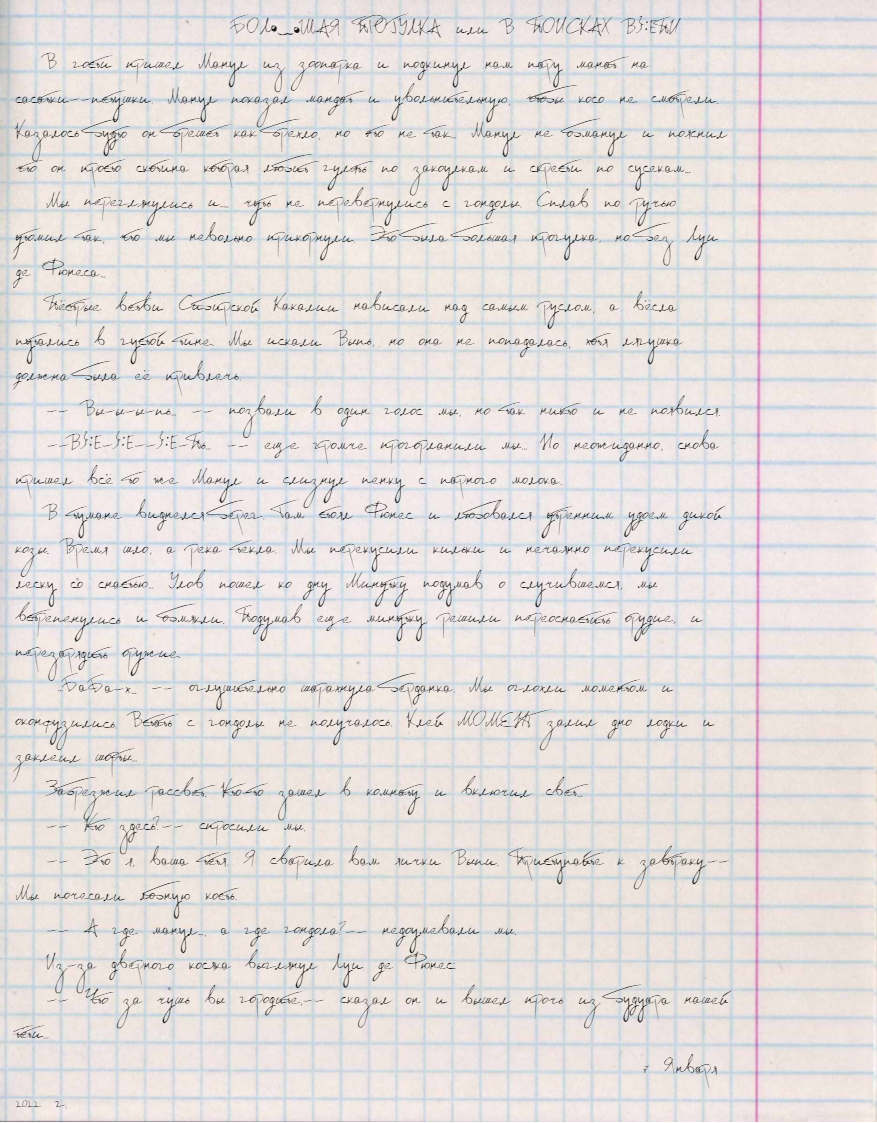 БОЛЬШАЯ ПРОГУЛКА или В ПОИСКАХ ВЫПИ
В гости пришел Манул из зоопарка и подкинул нам пару манат на
сосотки-петушки. Манул показал мандат и увольнительную, чтобы косо не смотрели.
Казалось будто он брешет как брехло, но это не так. Манул не обманул и пояснил
что он просто скотина которая любит гулять по закоулкам и скрести по сусекам...
Мы переглянулись и... чуть не перевернулись с гондолы. Сплав по ручью
утомил так, что мы невольно прикорнули. Это была большая прогулка, но без Луи
де Фюнеса...
Пёстрые ветви Сибирской Какалии нависали над самым руслом, а вёсла
путались в густой тине. Мы искали Выпь, но она не попадалась, хотя лягушка
должна была её привлечь.
-- Вы-ы-ы-пь... -- позвали в один голос мы, но так никто и не появился.
-- ВЫ-Ы-Ы-ПЬ... -- еще громче прогорланили мы. Но неожиданно, снова
пришел всё то же Манул и слизнул пенку с парного молока.
В тумане виднелся берег. Там стоял Фюнес и любовался утренним удоем дикой
козы. Время шло, а река текла. Мы перекусили кильки и нечаянно перекусили
леску со снастью... Улов пошел ко дну. Минутку подумав о случившемся, мы
встрепенулись и обмякли. Подумав еще минутку решили переоснастить орудие, и
перезарядить оружие.
-- БаБа-х... -- оглушительно шарахнула берданка. Мы оглохли моментом и
оконфузились. Встать с гондолы не получалось. Клей МОМЕНТ залил дно лодки и
заклеил шорты...
Забрезжил рассвет. Кто-то зашел в комнату и включил свет...
-- Кто здесь? -- спросили мы.
-- Это я, ваша тётя. Я сварила вам яички Выпи. Приступайте к завтраку --
Мы почесали лобную кость.
-- А где манул... а где гондола? -- недоумевали мы.
Из-за дверного косяка выглянул Луи де Фюнес
-- Что за чушь вы городите, -- сказал он и вышел прочь из будуара нашей
тёти...
7 Января
2022 г.